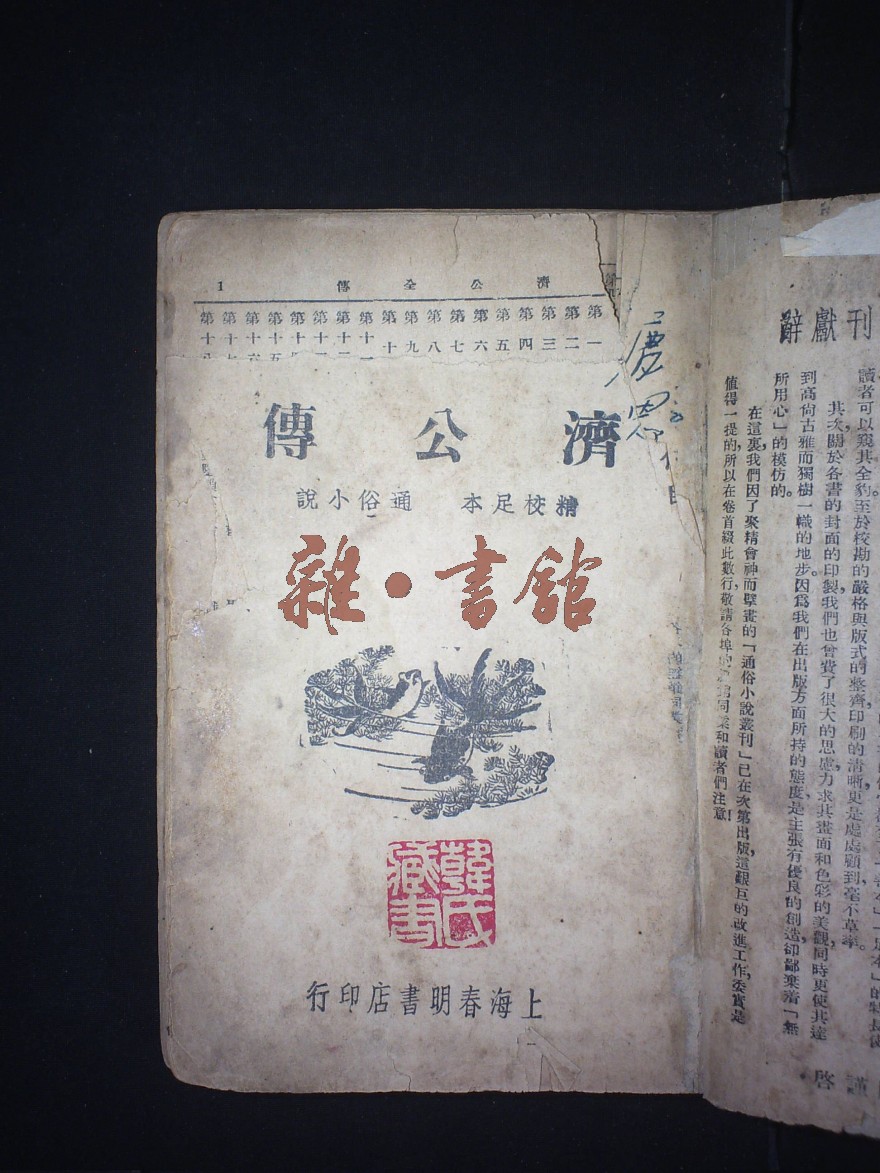 濟公全傳 1
第一
第二
第三
第四
第五
第六
第七
第八
第九
第十
第十一
第十二
第十
第十
第十五
第十六
第十七
第十八
濟公傳
精校足本 通俗小說
雜·書館
韓氏藏書
上海春明書店印行
刊獻辭
讀者可以窺其全豹至於校勘的嚴格與版式的整齊印刷的清晰更是處處顧到毫不草率。
其次,關於各書的封面的印製,我們也曾費了很大的思慮力求其畫面和色彩的美觀同時更使其達
到高尚古雅而獨樹一幟的地步因爲我們在出版方面所持的態度是主張有優良的創造,卻鄙棄着「無
所用心」的模仿的。
在這裏,我們因了聚精會神而擘畫的「通俗小說叢刊」已在次第出版,這艱巨的改進工作,委實是
值得一提的,所以在卷首綴此數行,敬請各埠的同業和讀者們注意!
謹啓